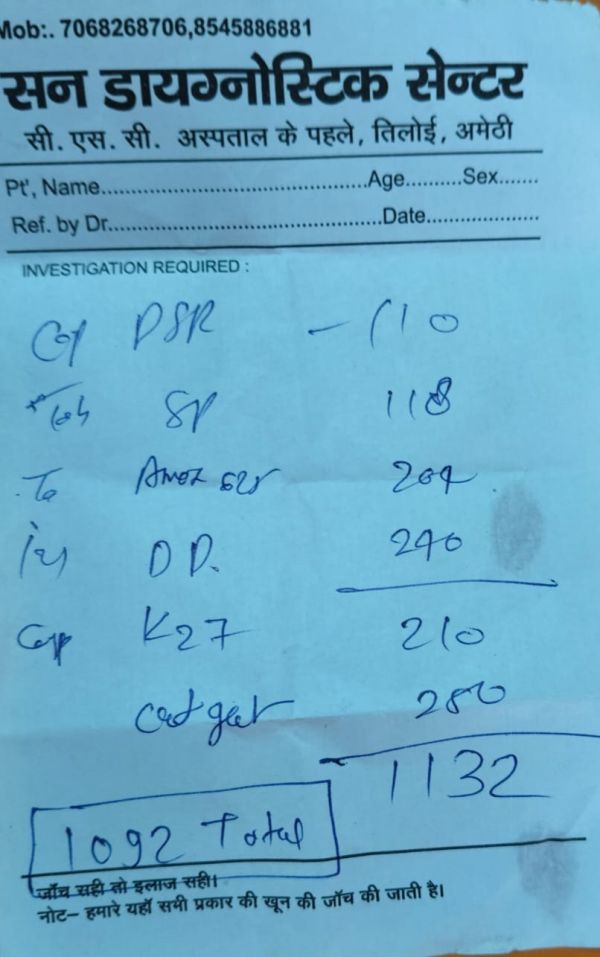 Mob:. 7068268706,8545886881
सन डायग्नोस्टिक सेन्टर
सी. एस. सी. अस्पताल के पहले, तिलोई, अमेठी
Pt', Name..........................................Age..........Sex.......
Ref. by Dr...........................................Date...................
INVESTIGATION REQUIRED :
DSR — 110
SP 118
204
DD. 240
Cap K27 210
280
1132
1092 Total
जॉच सही तो इलाज सही।
नोट– हमारे यहाँ सभी प्रकार की खून की जॉच की जाती है।